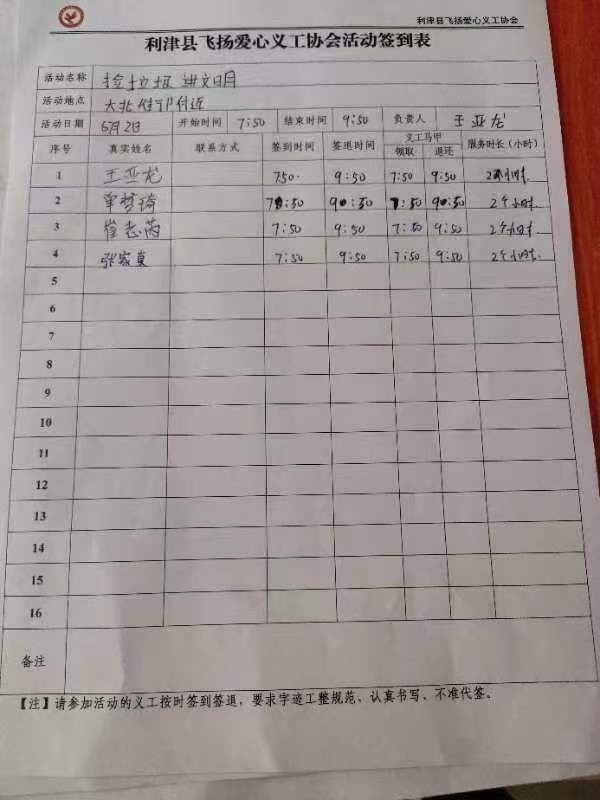 利津县飞扬爱心义工协会
利津县飞扬爱心义工协会活动签到表
活动名称 捡垃圾 讲文明
活动地点 大北 附近
活动日期 5月2日 开始时间 7:50 结束时间 9:50 负责人 王亚龙
序号 真实姓名 联系方式 签到时间 签退时间 义工马甲 服务时长（小时）
领取 退还
1 王亚龙 750 9:50 7:50 9:50 2个小时
2 单梦琦 7:50 9:50 7:50 9:50 2个小时
3 崔志芮 7:50 9:50 7:50 9:50 2个小时
4 张家真 7:50 9:50 7:50 9:50 2个小时
5
6
7
8
9
10
11
12
13
14
15
16
备注
【注】请参加活动的义工按时签到签退，要求字迹工整规范、认真书写、不准代签。